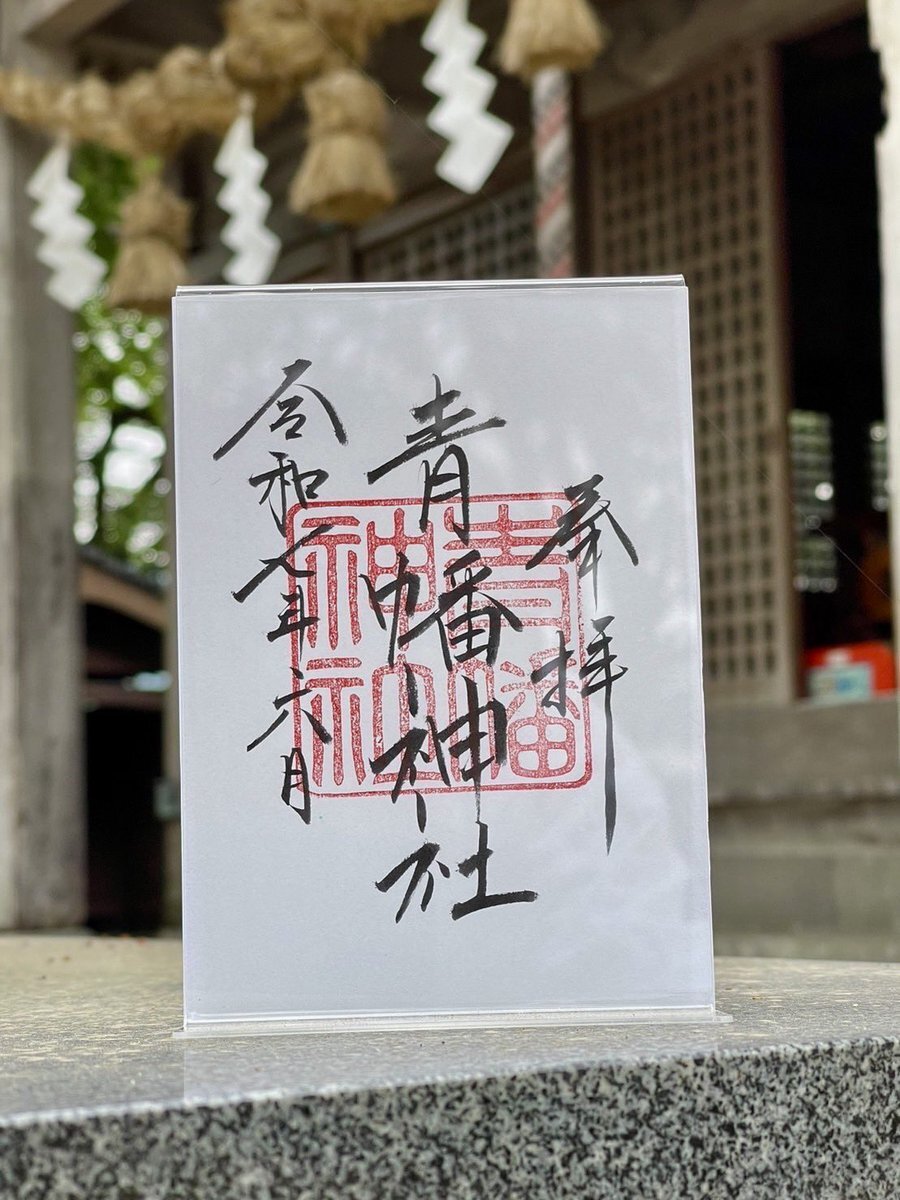 奉拝
青幡神社
令和七年六月
青幡
神社